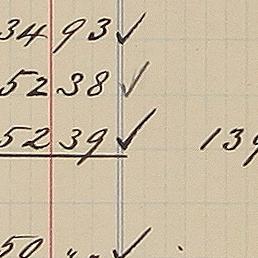 34 93 ✓
52 38 ✓
52 39 ✓ 139
50 " " ✓